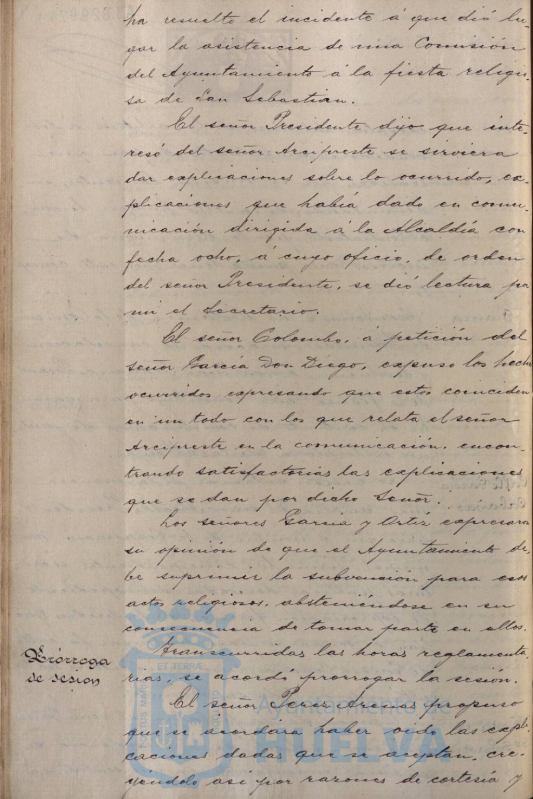 ha resuelto el incidente á que dió lu-
gar la asistencia de una Comisión
del Ayuntamiento á la fiesta religio-
sa de San Sebastian.
El señor Presidente dijo que inte-
resó del señor Arcipreste se sirviera
dar explicaciones sobre lo ocurrido, ex-
plicaciones que había dado en comu-
nicación dirigida á la Alcaldía con
fecha ocho, á cuyo oficio, de orden
del señor Presidente, se dió lectura por
mi el Secretario.
El señor Colombo, á petición del
señor García Don Diego, expuso los hechos
ocurridos expresando que estos coinciden
en un todo con los que relata el señor
Arcipreste en la comunicación, encon-
trando satisfactorias las explicaciones
que se dan por dicho Señor.
Los señores García y Ortiz expresaron
su opinión de que el Ayuntamiento de-
be suprimir la subvensión para esos
actos religiosos, absteniéndose en su
consecuencia de tomar parte en ellos.
Prórroga
de sesion
Transcurridas las horas reglamenta-
rias, se acordó prorrogar la sesión.
El señor Perez Arenas propuso
que se acordara haber oido las expli-
caciones dadas que se aceptan, cre-
yéndolo así por razones de cortesía y
Ayuntamiento de
HUELVA